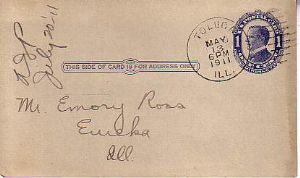 July 20-11
TOLUCA
MAY
13
6 PM
1911
ILL.
1
THIS SIDE OF CARD IS FOR ADDRESS ONLY
Mr. Emory Ross
Eureka
Ill.